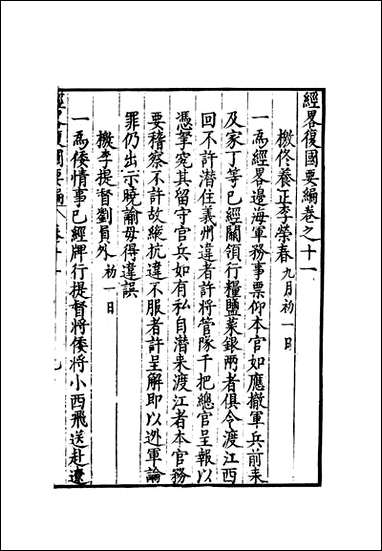 經畧復國要編卷之十一
檄佟養正李榮春九月初一日
一為經畧邊海軍務事票仰本官如應撤軍兵前來
及家丁等已經關領行糧鹽菜銀兩者俱令渡江西
回不許潛住義州違者許將管隊千把總官呈報以
憑拏究其留守官兵如有私自潛來渡江者本官務
要稽察不許故縱抗違不服者許呈解即以逃軍論
罪仍出示曉諭毋得違誤
檄李提督劉員外初一日
一為倭情事已經牌行提督將倭將小西飛送赴遼
經畧復國要編 卷十一 九